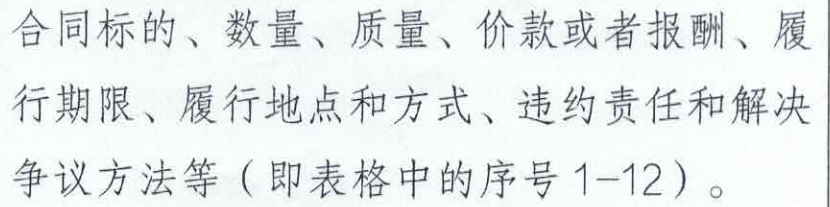 合同标的、数量、质量、价款或者报酬、履
行期限、履行地点和方式、违约责任和解决
争议方法等（即表格中的序号1-12）。